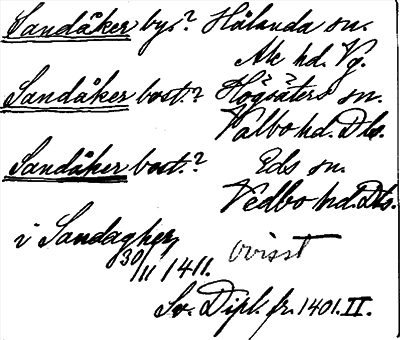 Sandåker by? Hålanda sn.
Ale hd. Vg.
Sandåker bost.? Högsäters sn.
Valbo hd. Dls.
Sandåker bost.? Eds sn.
Vedbo hd. Dls.
i Sandagher ovisst
30/11 1411.
Sv. Dipl. fr. 1401. II.